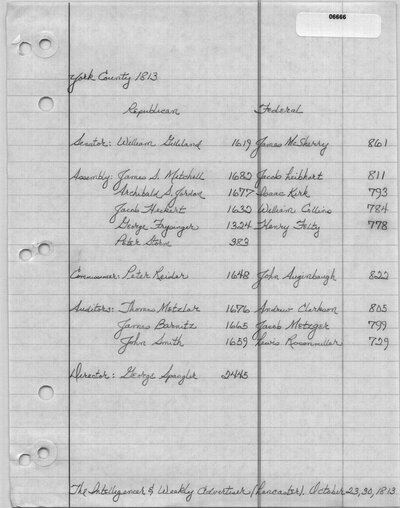 06666
York County 1813
Republican Federal
Senator: William Gilliland 1619 James McSherry 861
Assembly: James S. Mitchell 1682 Jacob Leibhart 811
Archibald S. Jordan 1677 Isaac Kirk 793
Jacob Heckert 1632 William Collins 784
George Frysinger 1324 Henry Felty 778
Peter Storm 383
Commissioner: Peter Reider 1648 John Augenbaugh 822
Auditors: Thomas Metzlar 1676 Andrew Clarkson 805
James Barnitz 1665 Jacob Metzger 799
John Smith 1659 Lewis Rosenmiller 729
Director: George Spangler 2445
The Intelligencer & Weekly Advertiser (Lancaster). October 23, 30, 1813